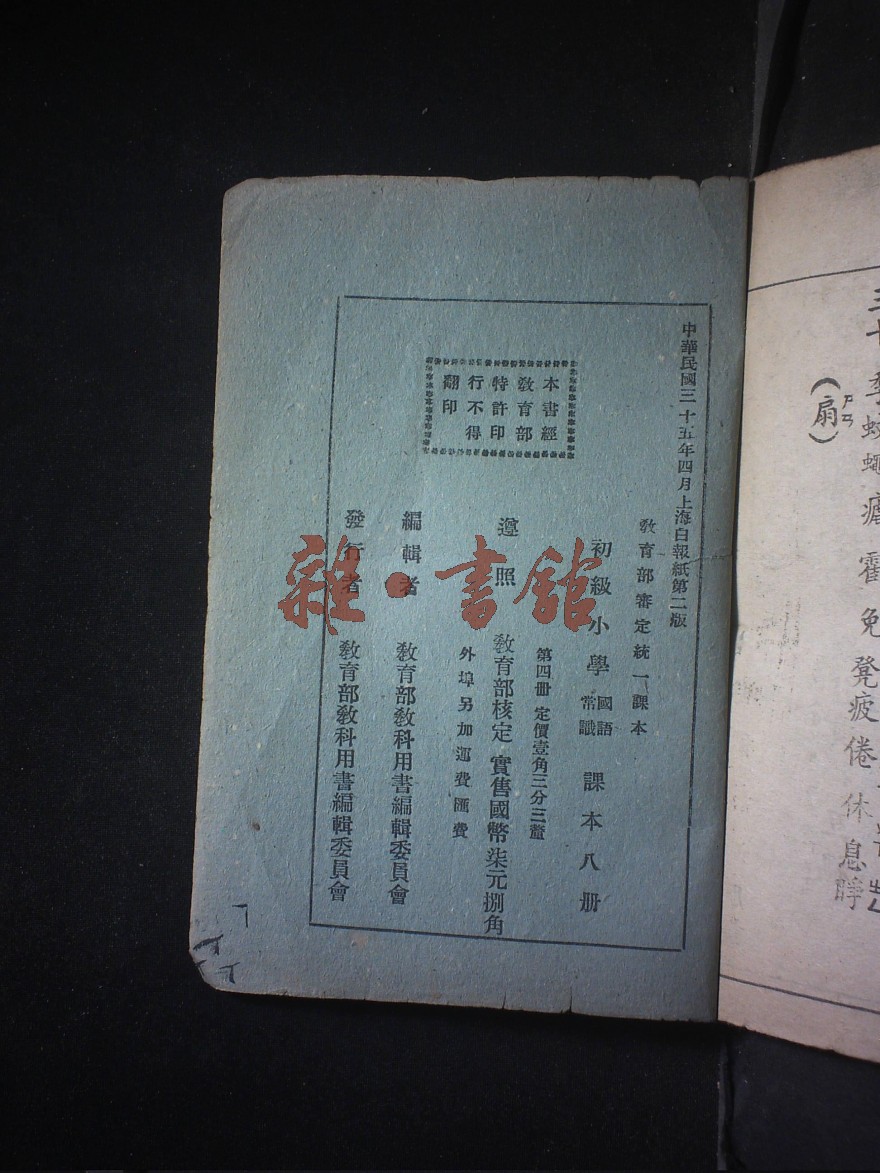 中華民國三十五年四月上海白報紙第二版
教育部審定統一課本
初級小學 國語 常識 課本八册
第四册 定價壹角三分三釐
遵照 教育部核定 實售國幣柒元捌角
外埠另加運費匯費
編輯者 教育部教科用書編輯委員會
發行者 教育部教科用書編輯委員會
本書經
教育部
特許印
行不得
翻印
雜·書館
(扇)
ㄕㄢ
免凳疲倦休息睜